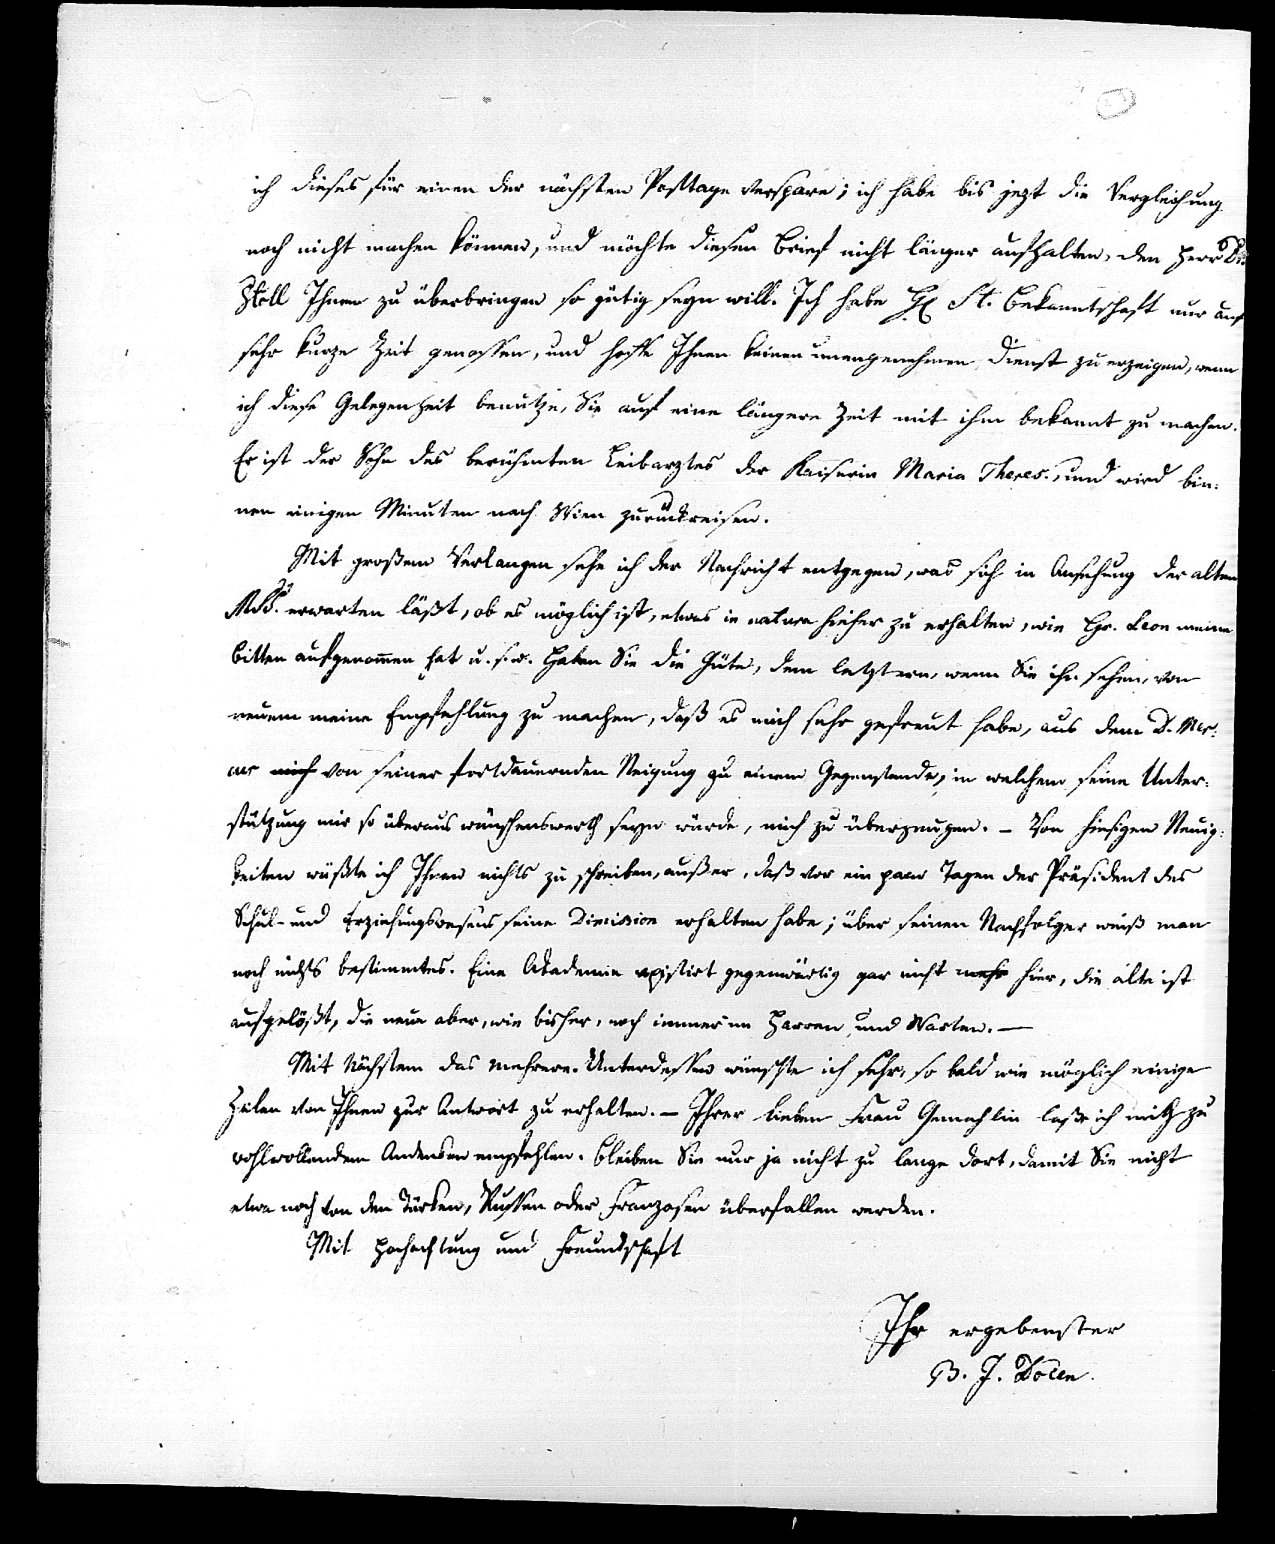 ich dieses für einen der nächsten Posttage verspare; ich habe bis jezt die Vergleichung
noch nicht machen können, und möchte diesen Brief nicht länger aufhalten, den Herr Dr.
Stoll Ihnen zu überbringen so gütig seyn will. Ich habe H. St. Bekanntschaft nur auf
sehr kurze Zeit genossen, und hoffe Ihnen keinen unangenehmen Dienst zu erzeigen, wenn
ich diese Gelegenheit benutze, Sie auf eine längere Zeit mit ihm bekannt zu machen.
Er ist der Sohn des berühmten Leibarztes der Kaiserin Maria Theres., und wird bin-
nen einigen Minuten nach Wien zurückreisen.
Mit großem Verlangen sehe ich der Nachricht entgegen, was sich in Ansehung der alten
Mss. erwarten läßt, ob es möglich ist, etwas in natura hieher zu erhalten, wie Hr. Leon meine
Bitten aufgenommen hat u. s. w. Haben Sie die Güte, dem letztern, wenn Sie ihn sehen, von
neuem meine Empfehlung zu machen, daß es mich sehr gefreut habe, aus dem D. Mer-
cur mich von seiner fortdauernden Neigung zu einem Gegenstande, in welchem seine Unter-
stützung mir so überaus wünschenswerth seyn würde, mich zu überzeugen. – Von hiesigen Neuig-
keiten wüßte ich Ihnen nichts zu schreiben, außer, daß vor ein paar Tagen der Präsident des
Schul- und Erziehungswesens seine Dimission erhalten habe; über seinen Nachfolger weiß man
noch nichts bestimmtes. Eine Akademie existirt gegenwärtig gar nicht mehr hier, die alte ist
aufgelößt, die neue aber, wie bisher, noch immer im Harren und Warten. —
Mit Nächstem das mehrere. Unterdessen wünschte ich sehr, so bald wie möglich einige
Zeilen von Ihnen zur Antwort zu erhalten. – Ihrer lieben Frau Gemahlin lasse ich mich zu
wohlwollendem Andenken empfehlen. Bleiben Sie nur ja nicht zu lange dort, damit Sie nicht
etwa noch von den Türken, Russen oder Franzosen überfallen werden.
Mit Hochachtung und Freundschaft
Ihr ergebenster
B. J. Docen.